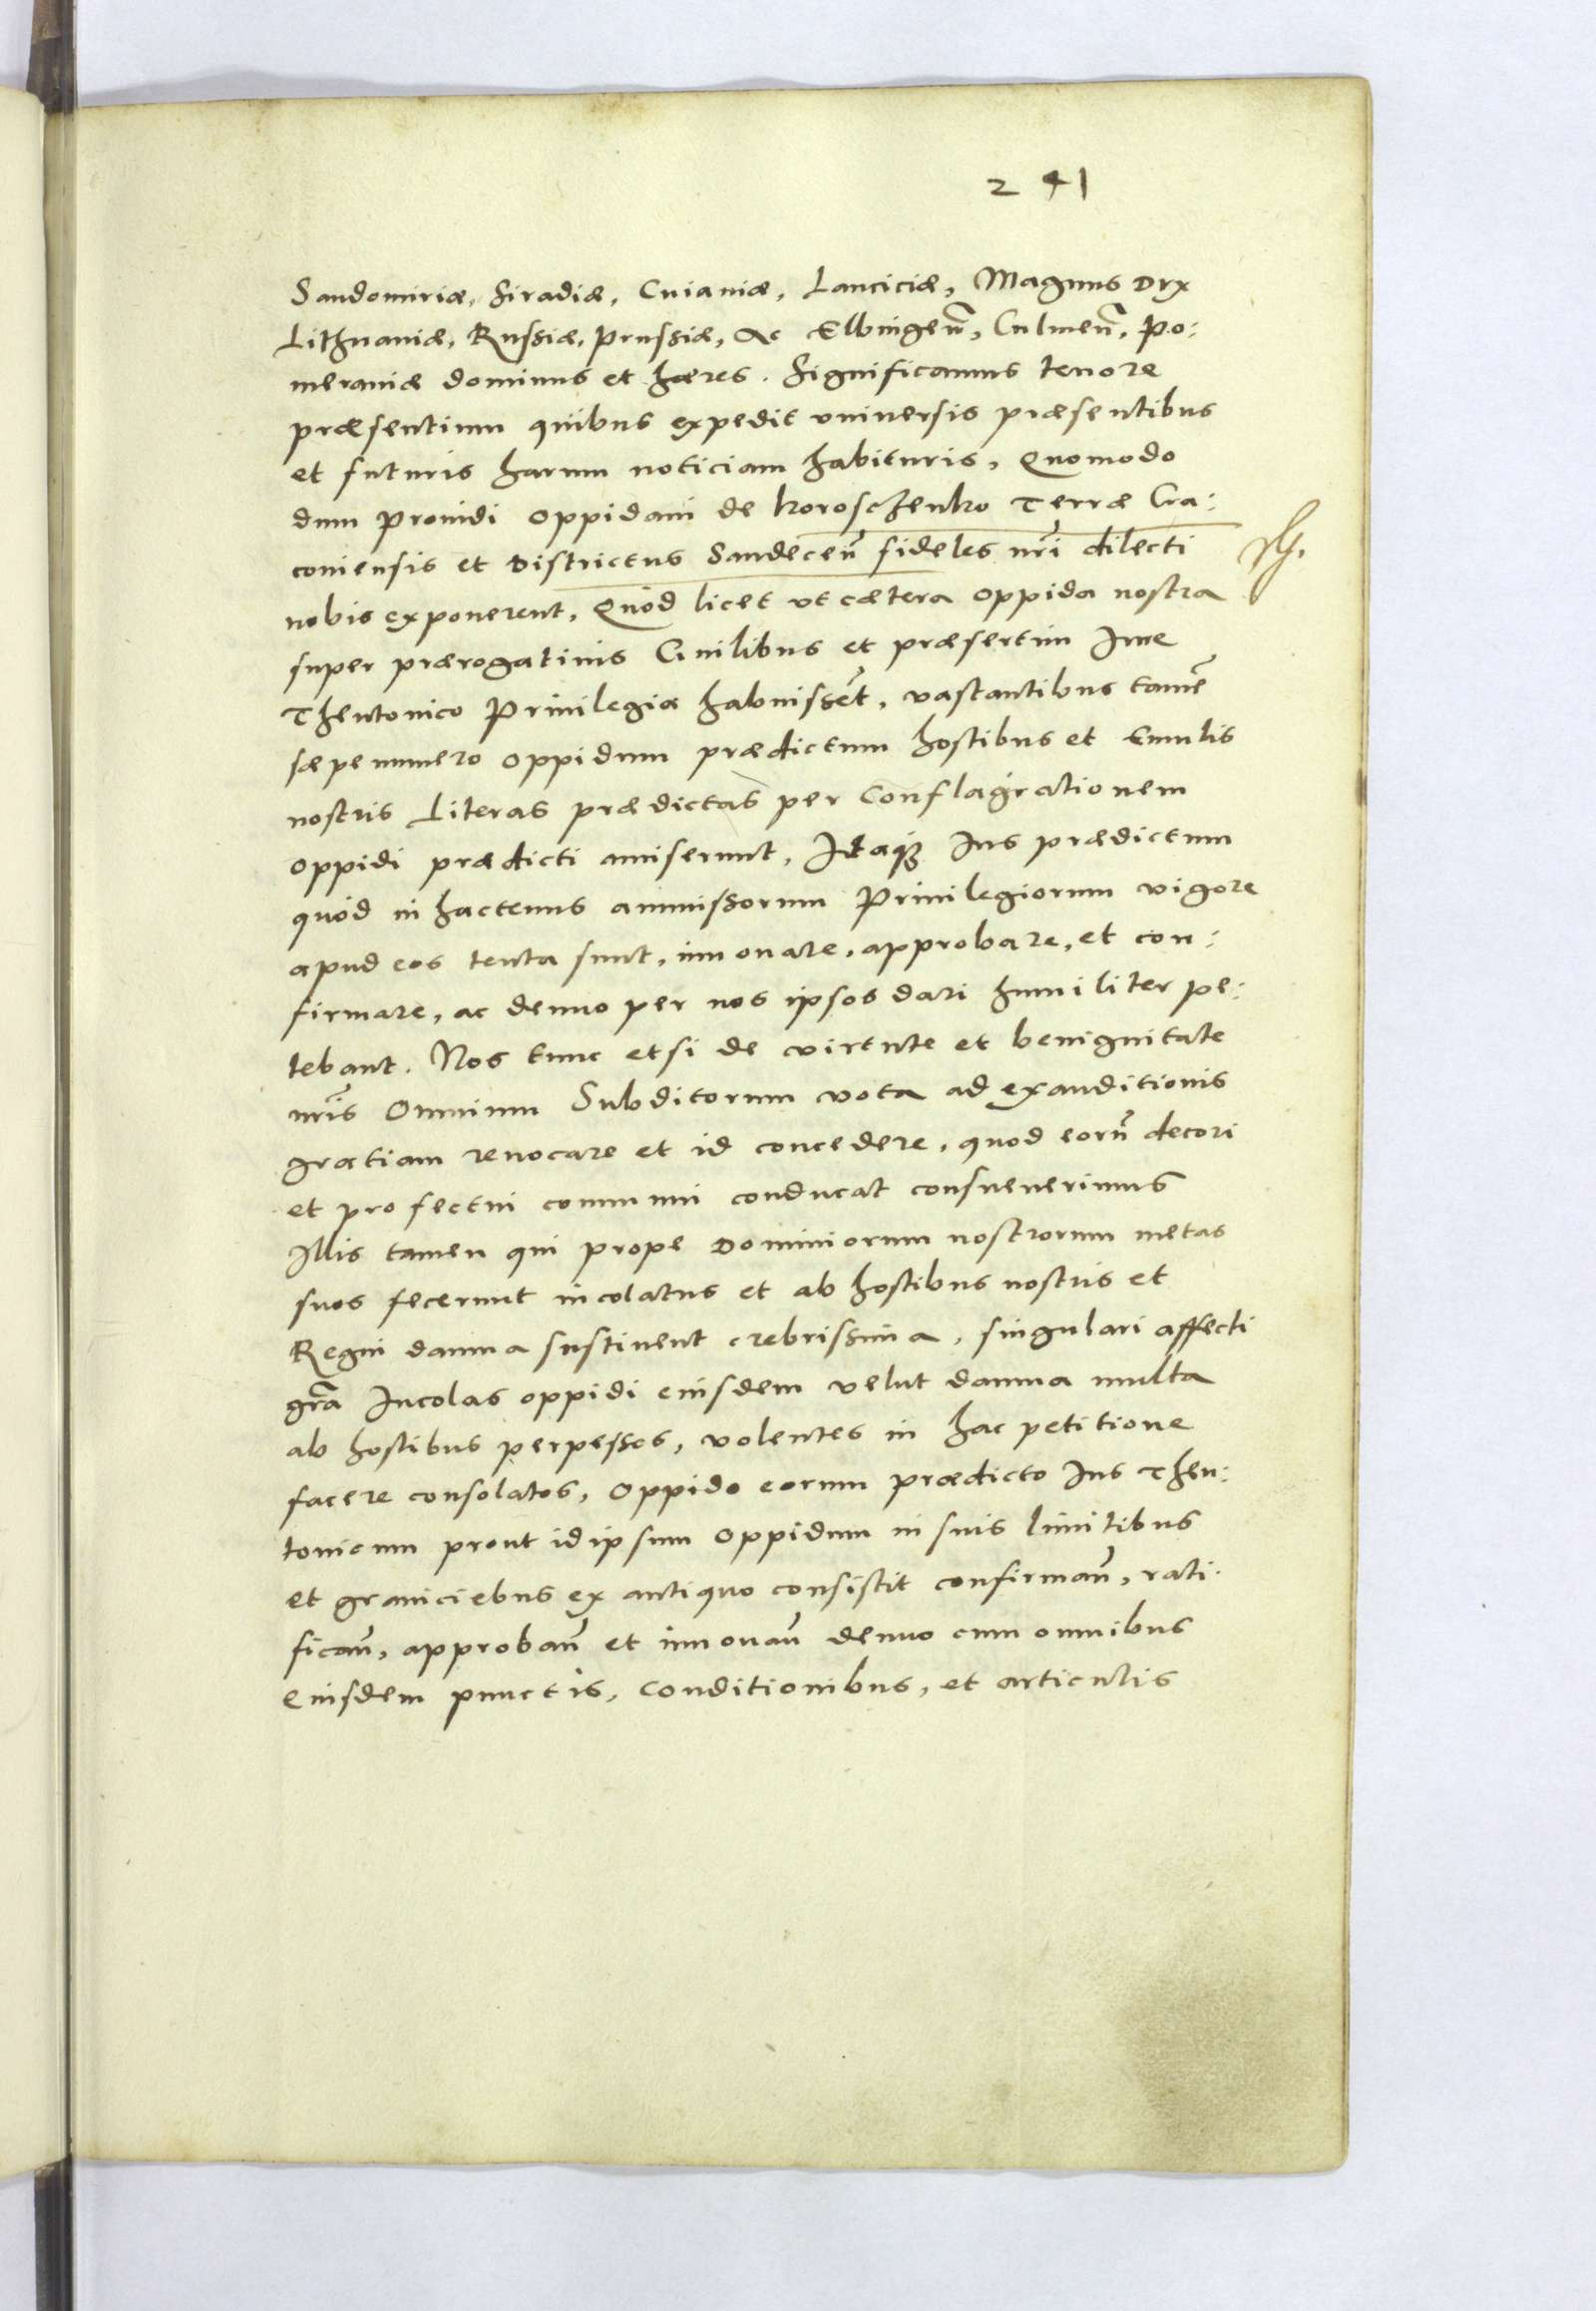 241
Sandomiriæ, Siradiæ, Cuiauiæ, Lanciciæ, Magnus Dux
Lithuaniæ, Russiæ, Prussiæ, Ac Elbingen̄, Culmen̄, Po:
meraniæ dominus et hæres. Significamus tenore
præsentium quibus expedit vniuersis præsentibus
et futuris harum noticiam habituris, Quomodo
dum Prouidi oppidani de Koroschenko Terræ Cra:
couiensis et Districtus Sandecen̄ fideles nr̄i dilecti
nobis exponerent, Quod licet vt cætera oppida nostra
super prærogatiuis Ciuilibus et præsertim Iure
Theutonico Priuilegia habuissēt, vastantibus tamē
sæpenumero oppidum prædictum hostibus et Emulis
nostris Literas prædictas per conflagrationem
oppidi prædicti amiserunt, Itaqȝ Ius prædictum
quod in hactenus ammissorum Priuilegiorum vigore
apud eos tenta sunt, innouare, approbare, et con:
firmare, ac denuo per nos ipsos dari humiliter pe:
tebant. Nos tunc etsi de virtute et benignitate
nr̄is Omnium Subditorum vota ad exauditionis
gratiam reuocare et id concedere, quod eorū decori
et profectui communi conducat consueuerimus
Illis tamen qui prope Dominiorum nostrorum metas
suos fecerunt incolatus et ab hostibus nostris et
Regni damna sustinent crebrissima, singulari affecti
gr̄a Incolas oppidi eiusdem velut damna multa
ab hostibus perpessos, volentes in hac petitione
facere consolatos, oppido eorum prædicto Ius Theu:
tonicum prout idipsum oppidum in suis limitibus
et graniciebus ex antiquo consistit confirman̄, rati:
fican̄, approban̄ et innouan̄ denuo cum omnibus
eiusdem punctis, conditionibus, et articulis